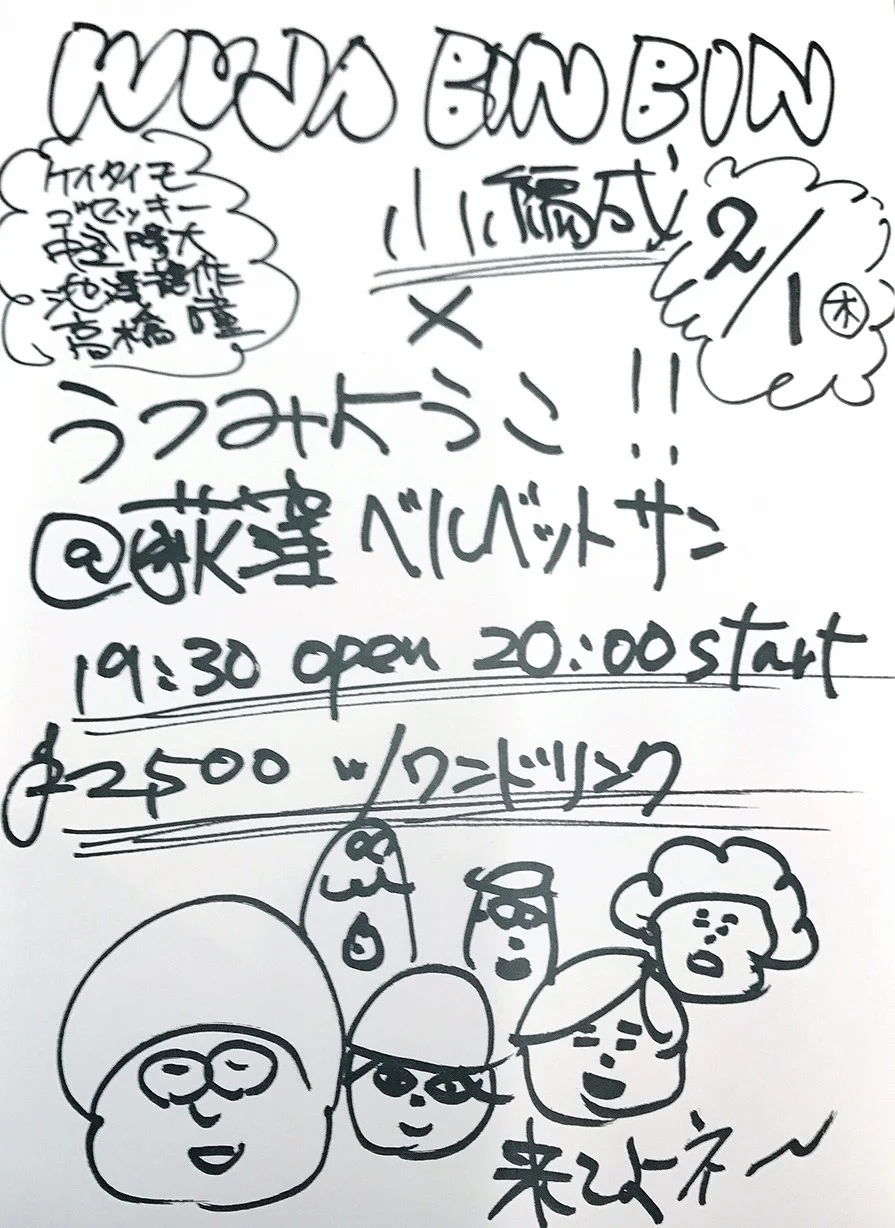 WUJA BIN BIN
ケイタイモ
ゴセッキー
中込 陽大
池澤龍作
高橋 瞳
小編成
2/1 ㊍
×
うつみようこ !!
@荻窪 ベルベットサン
19:30 open 20:00 start
¥2,500 w/ワンドリンク
来てよネ〜